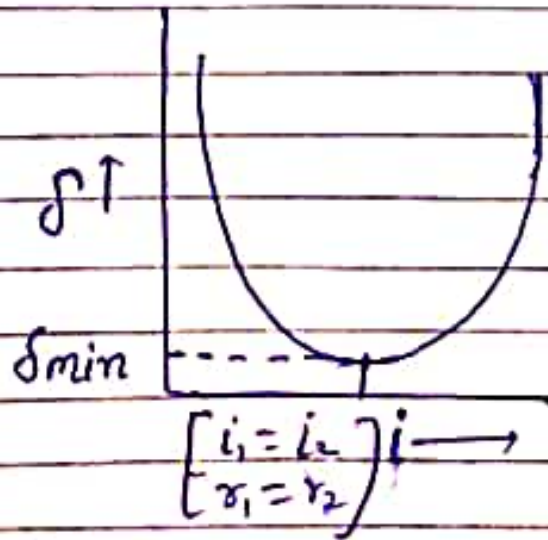 δ↑
δmin
[i₁ = i₂] i →
[r₁ = r₂]